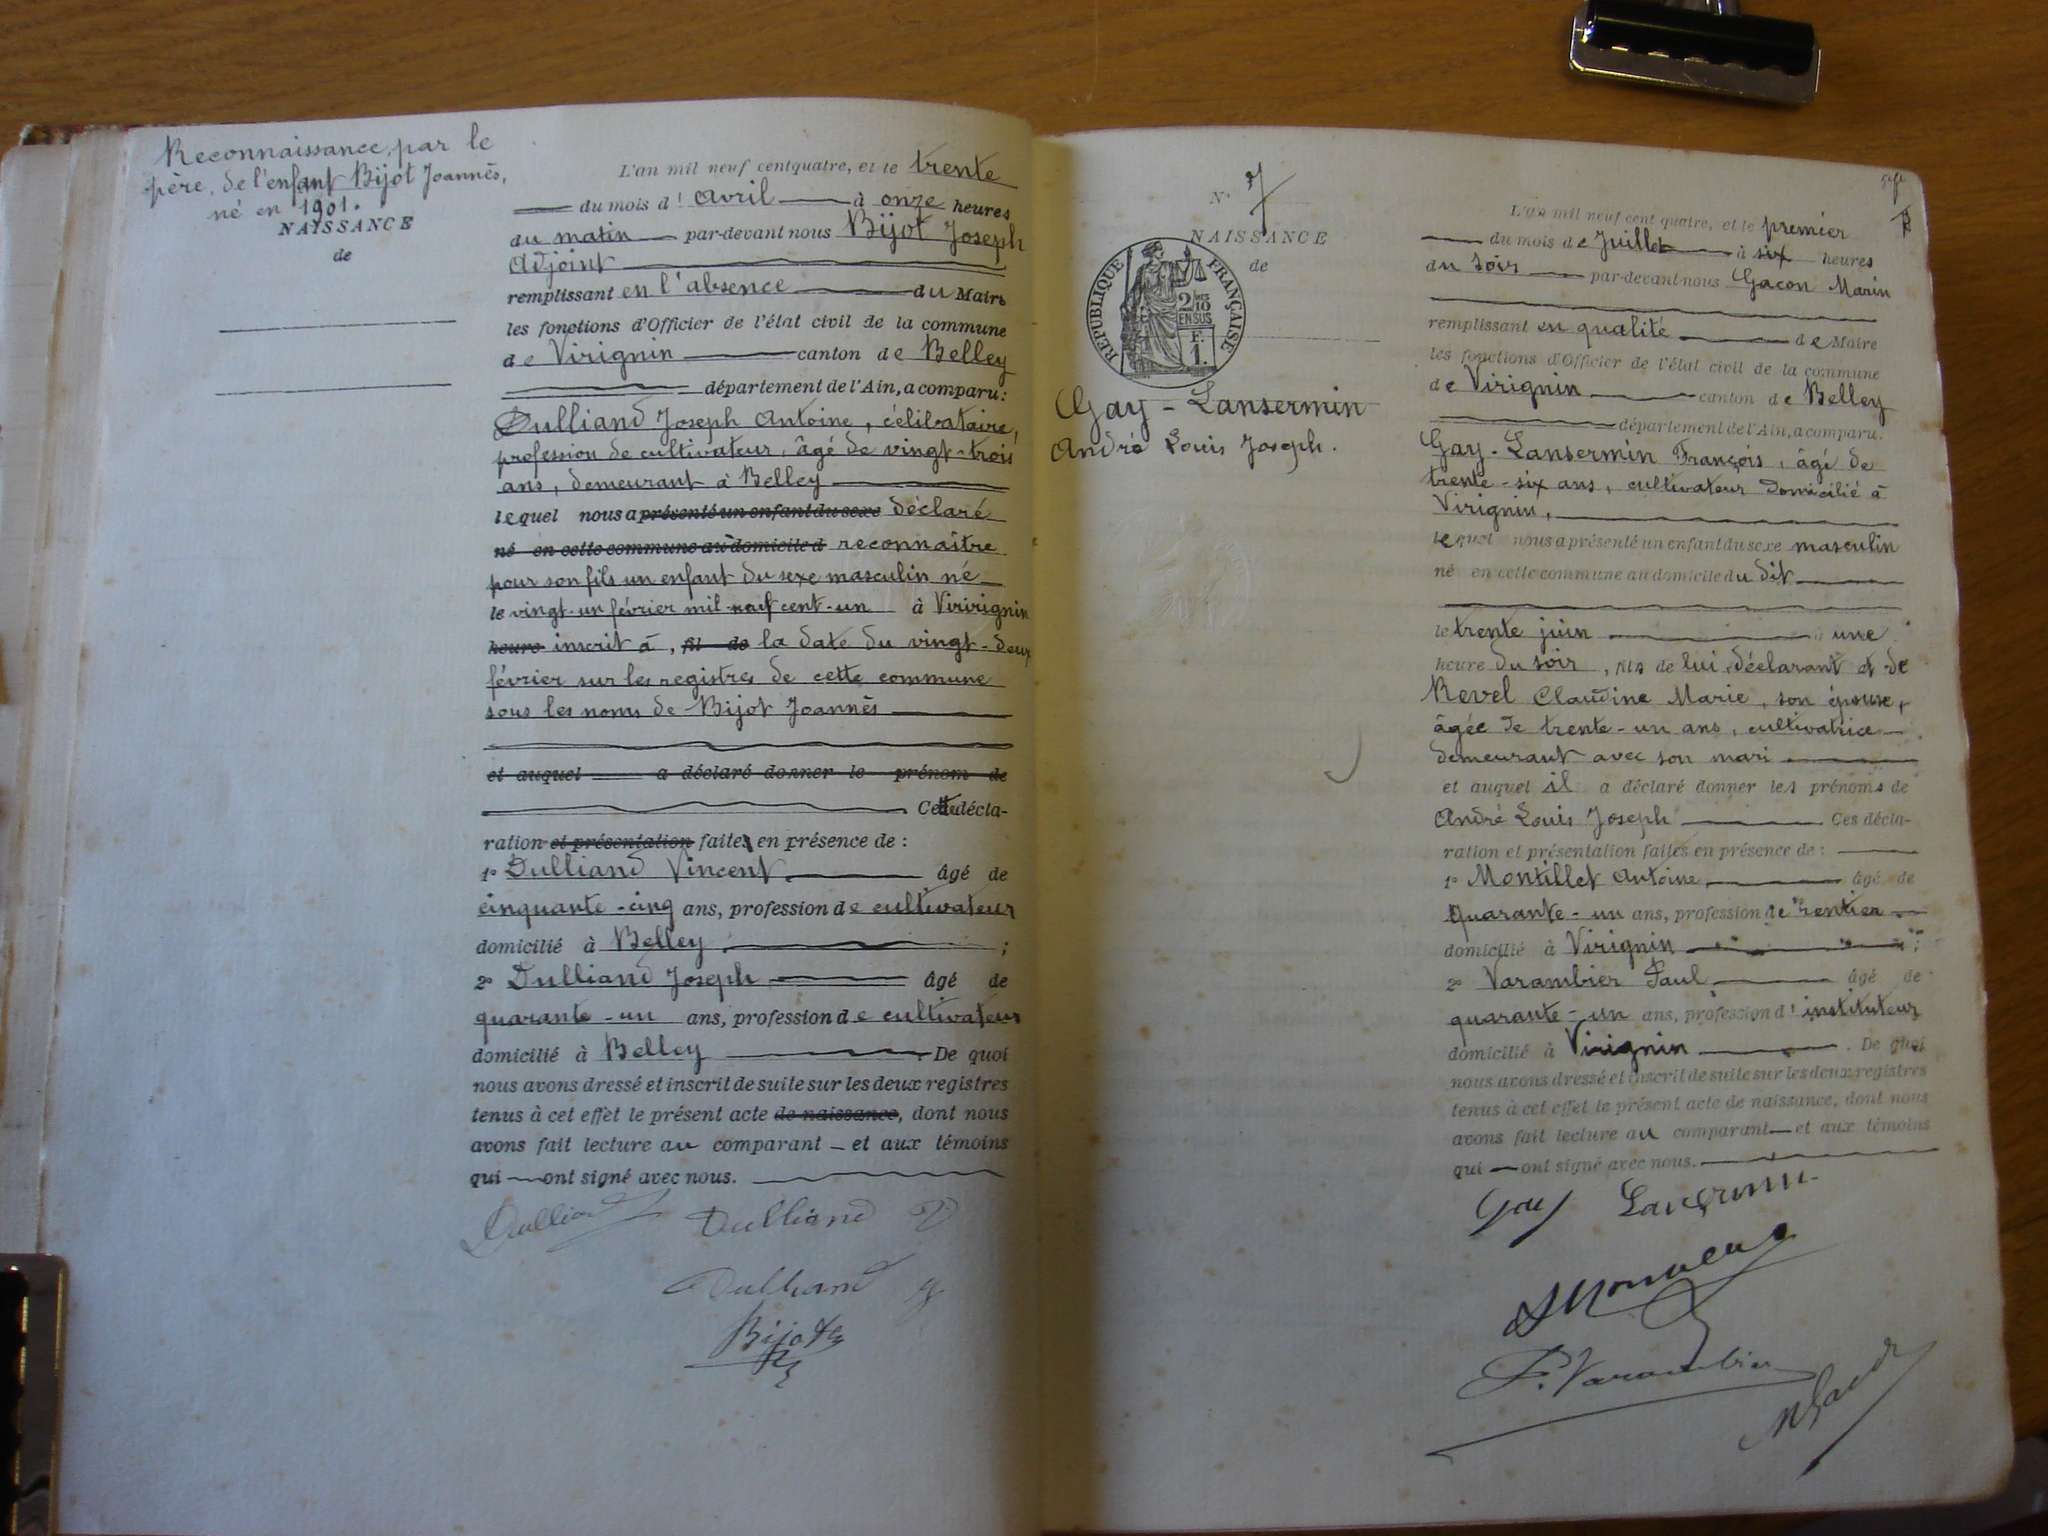 Reconnaissance, par le
père, de l'enfant Bijot Joannès,
né en 1901.
NAISSANCE
de
L'an mil neuf cent quatre, et le trente
du mois d'Avril à onze heures
du matin par-devant nous Bijot Joseph
Adjoint
remplissant en l'absence du Maire
les fonctions d'Officier de l'état civil de la commune
de Virignin canton de Belley
département de l'Ain, a comparu:
Dulliand Joseph Antoine, célibataire,
profession de cultivateur, âgé de vingt-trois
ans, demeurant à Belley
lequel nous a présenté un enfant du sexe déclaré
né en cette commune au domicile d reconnaître
pour son fils un enfant du sexe masculin né
le vingt-un février mil-neuf cent-un à Virirignin
heure inscrit à, fil de la date du vingt-deux
février sur les registres de cette commune
sous les noms de Bijot Joannès
et auquel a déclaré donner le prénom de
Cette décla-
ration et présentation faite en présence de :
1º Dulliand Vincent âgé de
cinquante-cinq ans, profession de cultivateur
domicilié à Belley ;
2º Dulliand Joseph âgé de
quarante-un ans, profession de cultivateur
domicilié à Belley De quoi
nous avons dressé et inscrit de suite sur les deux registres
tenus à cet effet le présent acte de naissance, dont nous
avons fait lecture au comparant et aux témoins
qui ont signé avec nous.
Dulliand Dulliand V
Dulliand J
Bijot
Nº 7
NAISSANCE
de
RÉPUBLIQUE FRANÇAISE
2/10
EN SUS
F.
1.
Gay-Lansermin
André Louis Joseph.
L'an mil neuf cent quatre, et le premier
du mois de Juillet à six heures
du soir par-devant nous Gacon Marin
remplissant en qualité de Maire
les fonctions d'Officier de l'état civil de la commune
de Virignin canton de Belley
département de l'Ain, a comparu:
Gay-Lansermin François, âgé de
trente-six ans, cultivateur domicilié à
Virignin,
lequel nous a présenté un enfant du sexe masculin
né en cette commune au domicile du dit
le trente juin à une
heure du soir, fils de lui déclarant et de
Revel Claudine Marie, son épouse,
âgée de trente-un ans, cultivatrice
demeurant avec son mari
et auquel il a déclaré donner les prénoms de
André Louis Joseph Ces décla-
ration et présentation faites en présence de :
1º Montillet Antoine, âgé de
quarante-un ans, profession de rentier
domicilié à Virignin ;
2º Varambier Paul âgé de
quarante-un ans, profession d'instituteur
domicilié à Virignin. De quoi
nous avons dressé et inscrit de suite sur les deux registres
tenus à cet effet le présent acte de naissance, dont nous
avons fait lecture au comparant et aux témoins
qui ont signé avec nous.
Gay Lansermin
P. Varambier